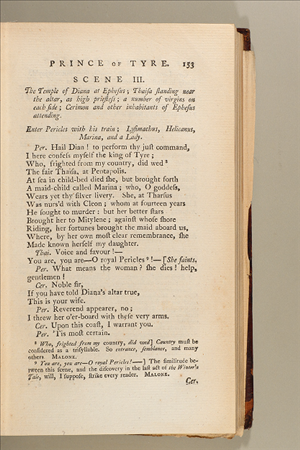 PRINCE OF TYRE. 153
SCENE III.
The Temple of Diana at Ephesus; Thaisa standing near
the altar, as high priestess; a number of virgins on
each side; Cerimon and other inhabitants of Ephesus
attending.
Enter Pericles with his train; Lysimachus, Helicanus,
Marina, and a Lady.
Per. Hail Dian! to perform thy just command,
I here confess myself the king of Tyre;
Who, frighted from my country, did wed ⁸
The fair Thaisa, at Pentapolis.
At sea in child-bed died she, but brought forth
A maid-child called Marina; who, O goddess,
Wears yet thy silver livery. She, at Tharsus
Was nurs'd with Cleon; whom at fourteen years
He sought to murder: but her better stars
Brought her to Mitylene; against whose shore
Riding, her fortunes brought the maid aboard us,
Where, by her own most clear remembrance, she
Made known herself my daughter.
Thai. Voice and favour!—
You, are, you are—O royal Pericles ⁹!—[She faints.
Per. What means the woman? she dies! help,
gentlemen!
Cer. Noble sir,
If you have told Diana's altar true,
This is your wife.
Per. Reverend appearer, no;
I threw her o'er-board with these very arms.
Cer. Upon this coast, I warrant you.
Per. 'Tis most certain.
⁸ Who, frighted from my country, did wed] Country must be
considered as a trisyllable. So entrance, semblance, and many
others. MALONE.
⁹ You are, you are—O royal Pericles!—] The similitude be-
tween this scene, and the discovery in the last act of the Winter's
Tale, will, I suppose, strike every reader. MALONE.
Cer.